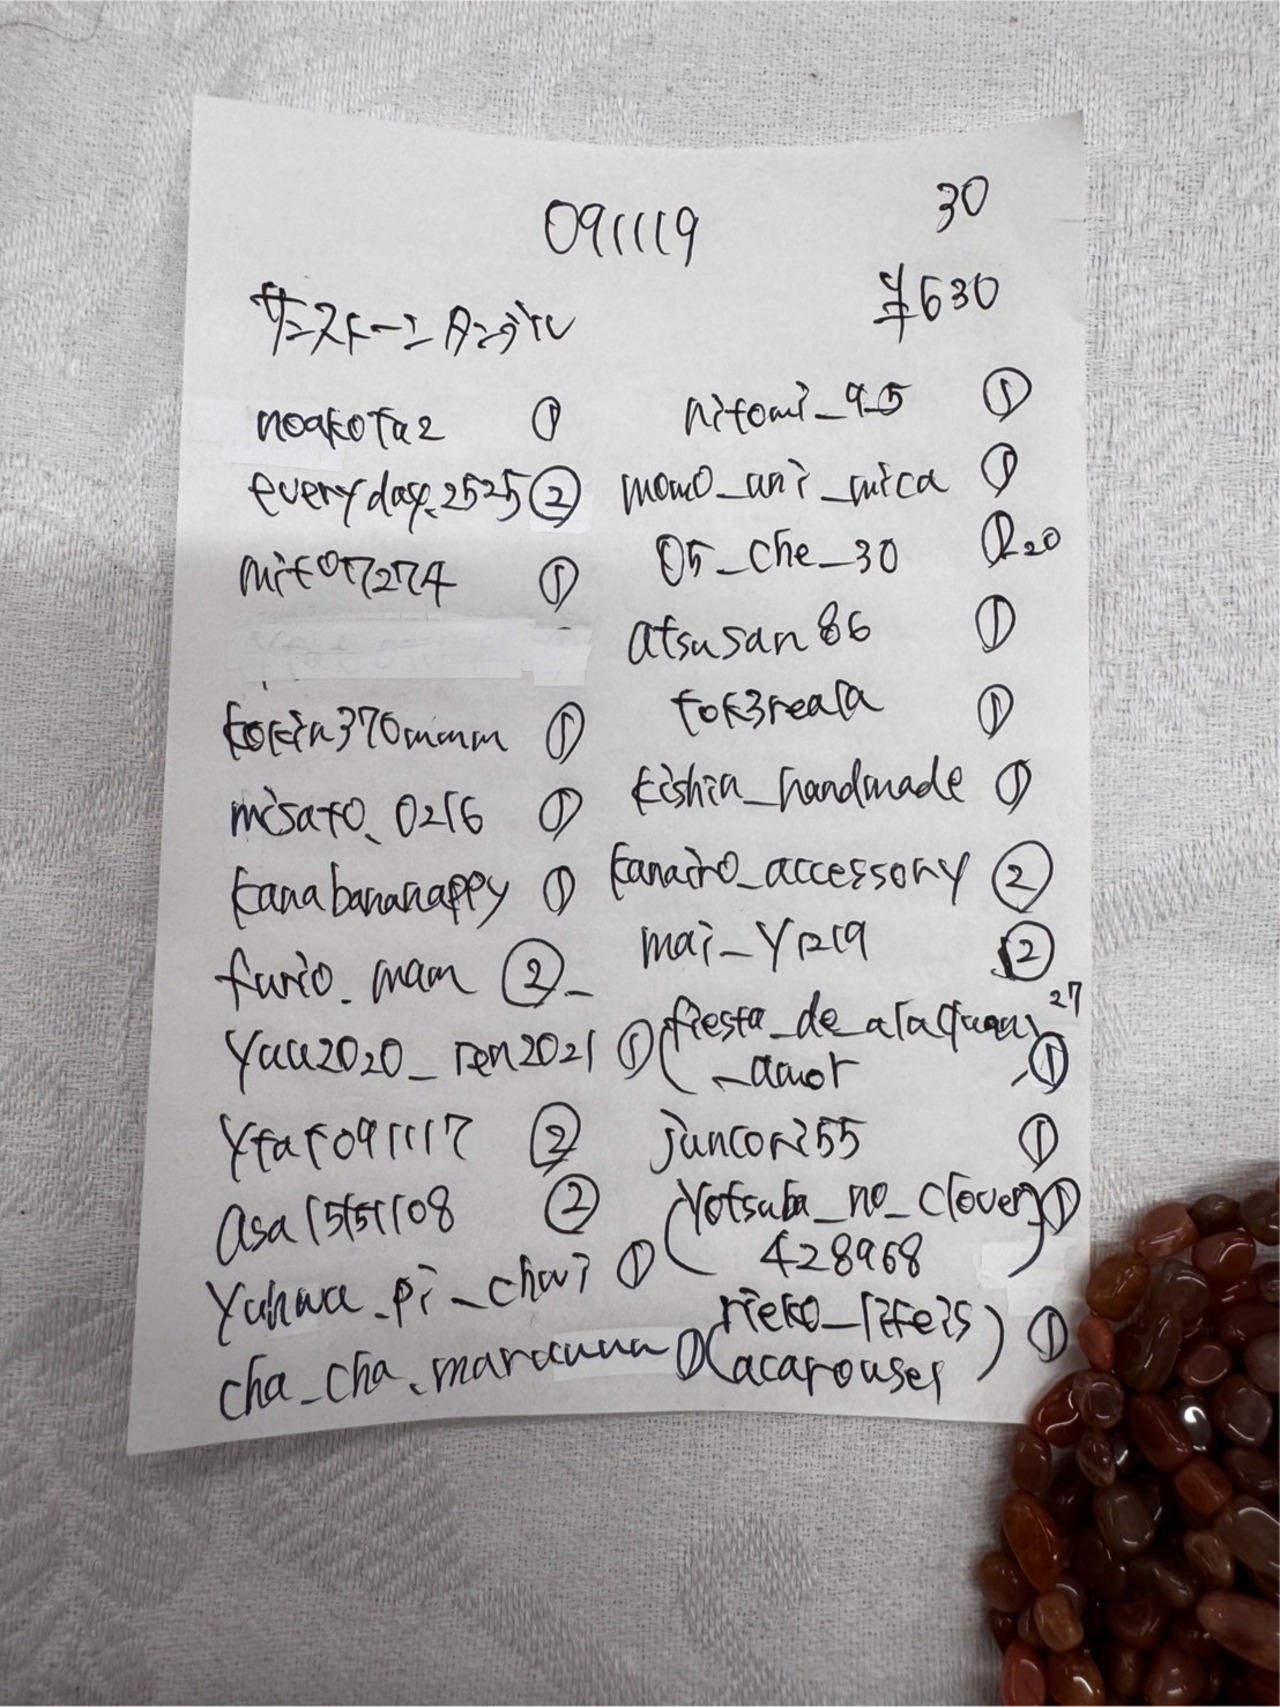 091119
30
サンストーンタンブル
¥630
noakota2 ①
everyday.2525 ②
mit07274 ①
tokin370mmm ①
misato.0216 ①
kanabananappy ①
furio.mam ②
yuu2020_ren2021 ①
ytat091117 ②
asa15151108 ②
yuhua_pi_chui ①
cha_cha.maruuuu ①
hitomi_95 ①
momo_ani_mica ①
05_che_30 ① 20
atsusan86 ①
tok3reala ①
kishin_handmade ①
kanairo_accessory ②
mai_y1219 ②
27
(fiesta_de_
_amor ①
juncori55 ①
(yotsuba_no_clover ①
428968)
(rieko_lifeis
acarousel) ①